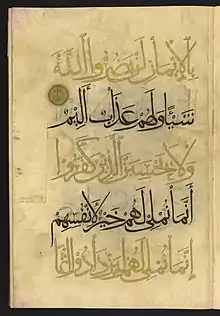 بِالْإِيمَانِ لَنْ يَضُرُّوا اللَّهَ
شَيْئًا وَلَهُمْ عَذَابٌ أَلِيمٌ
وَلَا يَحْسَبَنَّ الَّذِينَ كَفَرُوا
أَنَّمَا نُمْلِي لَهُمْ خَيْرٌ لِأَنْفُسِهِمْ
إِنَّمَا نُمْلِي لَهُمْ لِيَزْدَادُوا إِثْمًا